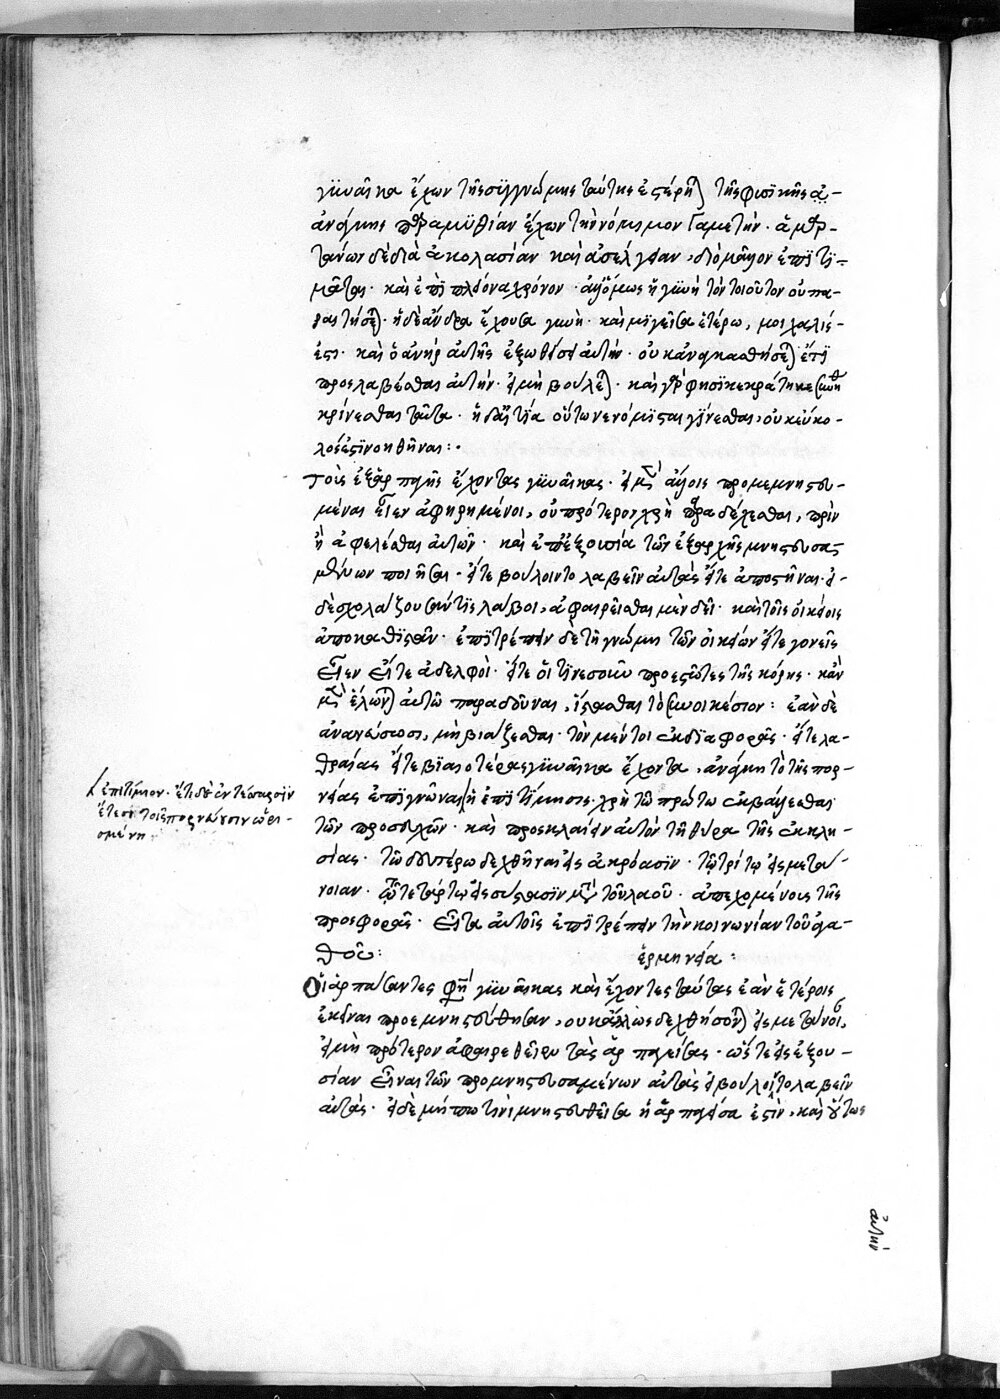 γυναῖκα ἔχων τῆς συγγνώμης ταύτης ἐστέρηται τῆς φυσικῆς ἀ-
ἀνάγκης παραμυθίαν ἔχων τὴν νόμιμον γαμετήν· ἁμαρ-
τάνων δὲ διὰ ἀκολασίαν καὶ ἀσέλγειαν, διὸ μᾶλλον ἐπιτι-
μᾶται· καὶ ἐπὶ πλείονα χρόνον· ἀλλ' ὅμως ἡ γυνὴ τὸν τοιοῦτον οὐ πα-
ραιτήσεται· ἡ δὲ ἄνδρα ἔχουσα γυνὴ· καὶ μιγεῖσα ἑτέρω, μοιχαλίς
ἐστι· καὶ ὁ ἀνὴρ αὐτῆς ἐξωθήσει αὐτήν· οὐκ ἀναγκασθήσεται ἔτι
προσλαβέσθαι αὐτήν· εἰ μὴ βούλεται· καὶ γάρ φησι κεκράτηκε συνήθεια
κρίνεσθαι ταῦτα· ἡ δ' αἰτία οὕτω νενόμισται γίνεσθαι, οὐκ εὔκο-
λός ἐστι νοηθῆναι:·
Τοὺς ἐξ ἁρπαγῆς ἔχοντας γυναῖκας· εἰ μὲν ἄλλοις προμεμνηστευ-
μέναι εἶεν ἀφῃρημένοι, οὐ πρότερον χρὴ παραδέχεσθαι, πρὶν
ἢ ἀφελέσθαι αὐτῶν· καὶ ἐπ' ἐξουσία τῶν ἐξ ἀρχῆς μνηστευσα
μένων ποιῆσαι· εἴτε βούλοιντο λαβεῖν αὐτὰς εἴτε ἀποστῆναι· εἰ
δὲ σχολάζουσάν τις λάβοι, ἀφαιρεῖσθαι μὲν δεῖ· καὶ τοῖς οἰκείοις
ἀποκαθιστᾶν· ἐπιτρέπειν δὲ τῇ γνώμῃ τῶν οἰκείων εἴτε γονεῖς
εἶεν εἴτε ἀδελφοὶ· εἴτε οἵ τινες οὖν προεστῶτες τῆς κόρης· κἂν
μὲν ἕλωνται αὐτῶ παραδοῦναι, ἵστασθαι τὸ συνοικέσιον: ἐὰν δὲ
ἀνανεύσωσι, μὴ βιάζεσθαι· τὸν μέντοι ἐκ διαφορᾶς· εἴτε λα-
θραίας εἴτε βιαιοτέρας γυναῖκα ἔχοντα, ἀνάγκη τὸ τῆς πορ-
νείας ἐπιγνῶναι ἡ ἐπιτίμησις· χρὴ τῶ πρώτω ἐκβάλλεσθαι
τῶν προσευχῶν· καὶ προσκλαίειν αὐτὸν τῇ θύρα τῆς ἐκκλη-
σίας· τῶ δευτέρω δεχθῆναι εἰς ἀκρόασιν· τῷ τρίτῳ εἰς μετά-
νοιαν· τῷ τετάρτω εἰς σύστασιν μετὰ τοῦ λαοῦ· ἀπεχομένοις τῆς
προσφορᾶς· εἶτα αὐτοῖς ἐπιτρέπειν τὴν κοινωνίαν τοῦ ἀγα-
θοῦ: ἑρμηνεία:
Οἱ ἁρπάσαντές φησι γυναῖκας καὶ ἔχοντες ταύτας ἐὰν ἑτέροις
ἐκεῖναι προεμνηστεύθησαν, οὐκ ἄλλως δεχθήσονται εἰς μετάνοιαν,
εἰ μὴ πρότερον ἀφαιρεθεῖεν τὰς ἁρπαγείσας· ὥστε εἰς ἐξου-
σίαν εἶναι τῶν προμνηστευσαμένων αὐτὰς εἰ βούλοιντο λαβεῖν
αὐτάς· εἰ δὲ μήπω τινὶ μνηστευθεῖσα ἡ ἁρπαγεῖσα ἐστὶν, καὶ οὕτως
ἐπιτίμιον· ἔστι δὲ ἐν τέσσαρσιν
ἔτεσι τοῖς πορνεύουσιν ὡρι-
σμένη
αὐτὴν